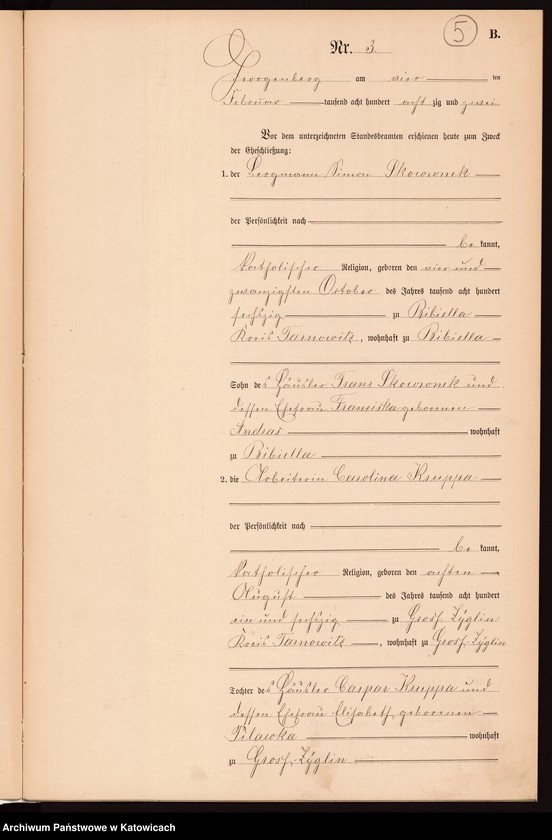 5
B.
Nr. 3.
Georgenberg am vier ten
Februar tausend acht hundert acht zig und zwei
Vor dem unterzeichneten Standesbeamten erschienen heute zum Zweck
der Eheschließung:
1. der Bergmann Simon Skowronek
der Persönlichkeit nach
be kannt,
katholischer Religion, geboren den vier und
zwanzigsten October des Jahres tausend acht hundert
sechszig zu Bibiella
Kreis Tarnowitz, wohnhaft zu Bibiella
Sohn des Häusler Franz Skowronek und
dessen Ehefrau Franziska geborenen
Andras wohnhaft
zu Bibiella
2. die Arbeiterin Carolina Kruppa
der Persönlichkeit nach
be kannt,
katholischer Religion, geboren den achten
August des Jahres tausend acht hundert
ein und sechszig zu Gross-Zyglin
Kreis Tarnowitz, wohnhaft zu Gross-Zyglin
Tochter des Häusler Caspar Kruppa und
dessen Ehefrau Elisabeth, geborenen
Pilawka wohnhaft
zu Gross-Zyglin
Archiwum Państwowe w Katowicach